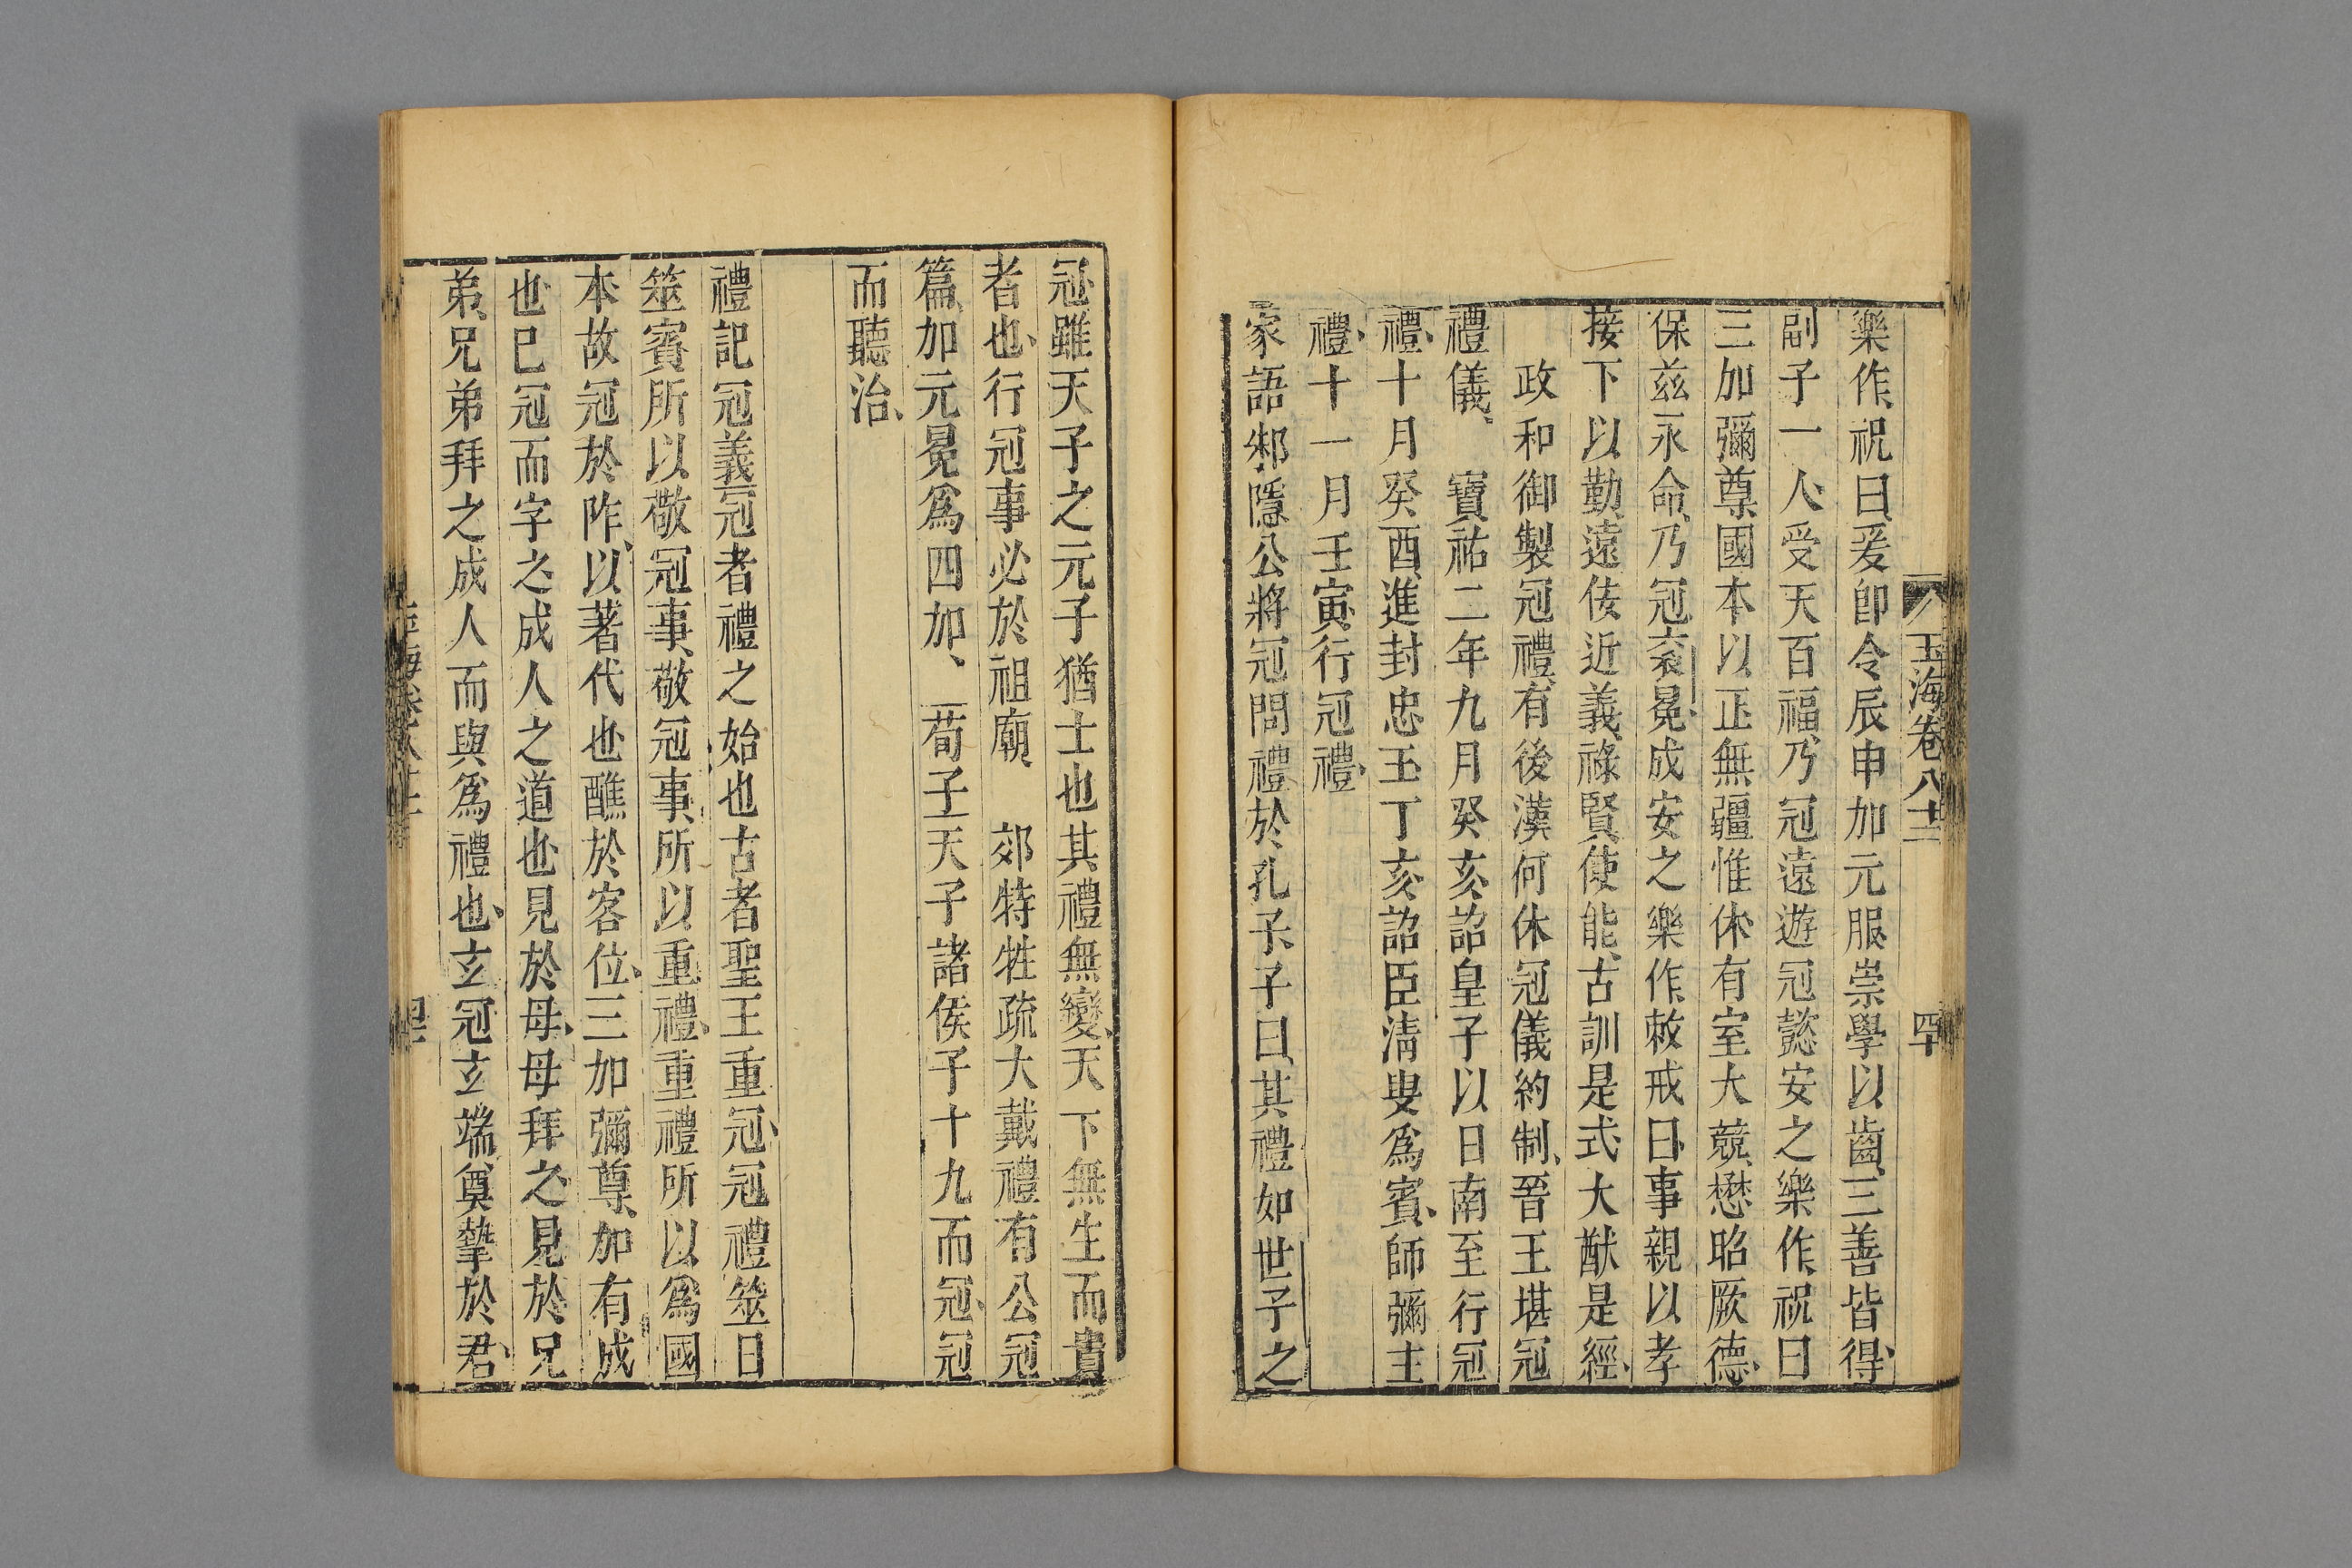 玉海卷八十二 四十
樂作祝曰爰卽令辰申加元服崇學以齒三善皆得
副子一人受天百福乃冠遠遊冠懿安之樂作祝曰
三加彌尊國本以正無疆惟休有室大競懋昭厥德
保兹永命乃冠衮冕成安之樂作敕戒曰事親以孝
接下以勤遠佞近義祿賢使能古訓是式大猷是經
政和御製冠禮有後漢何休冠儀約制晉王堪冠
禮儀 寶祐二年九月癸亥詔皇子以日南至行冠
禮十月癸酉進封忠王丁亥詔臣淸叟爲賓師彌主
禮十一月壬寅行冠禮
家語邾隱公將冠問禮於孔子子曰其禮如世子之
冠雖天子之元子猶士也其禮無變天下無生而貴
者也行冠事必於祖廟 郊特牲疏大戴禮有公冠
篇加元冕爲四加 荀子天子諸侯子十九而冠冠
而聽治
禮記冠義冠者禮之始也古者聖王重冠冠禮筮日
筮賓所以敬冠事敬冠事所以重禮重禮所以爲國
本故冠於阼以著代也醮於客位三加彌尊加有成
也已冠而字之成人之道也見於母母拜之見於兄
弟兄弟拜之成人而與爲禮也玄冠玄端奠摯於君